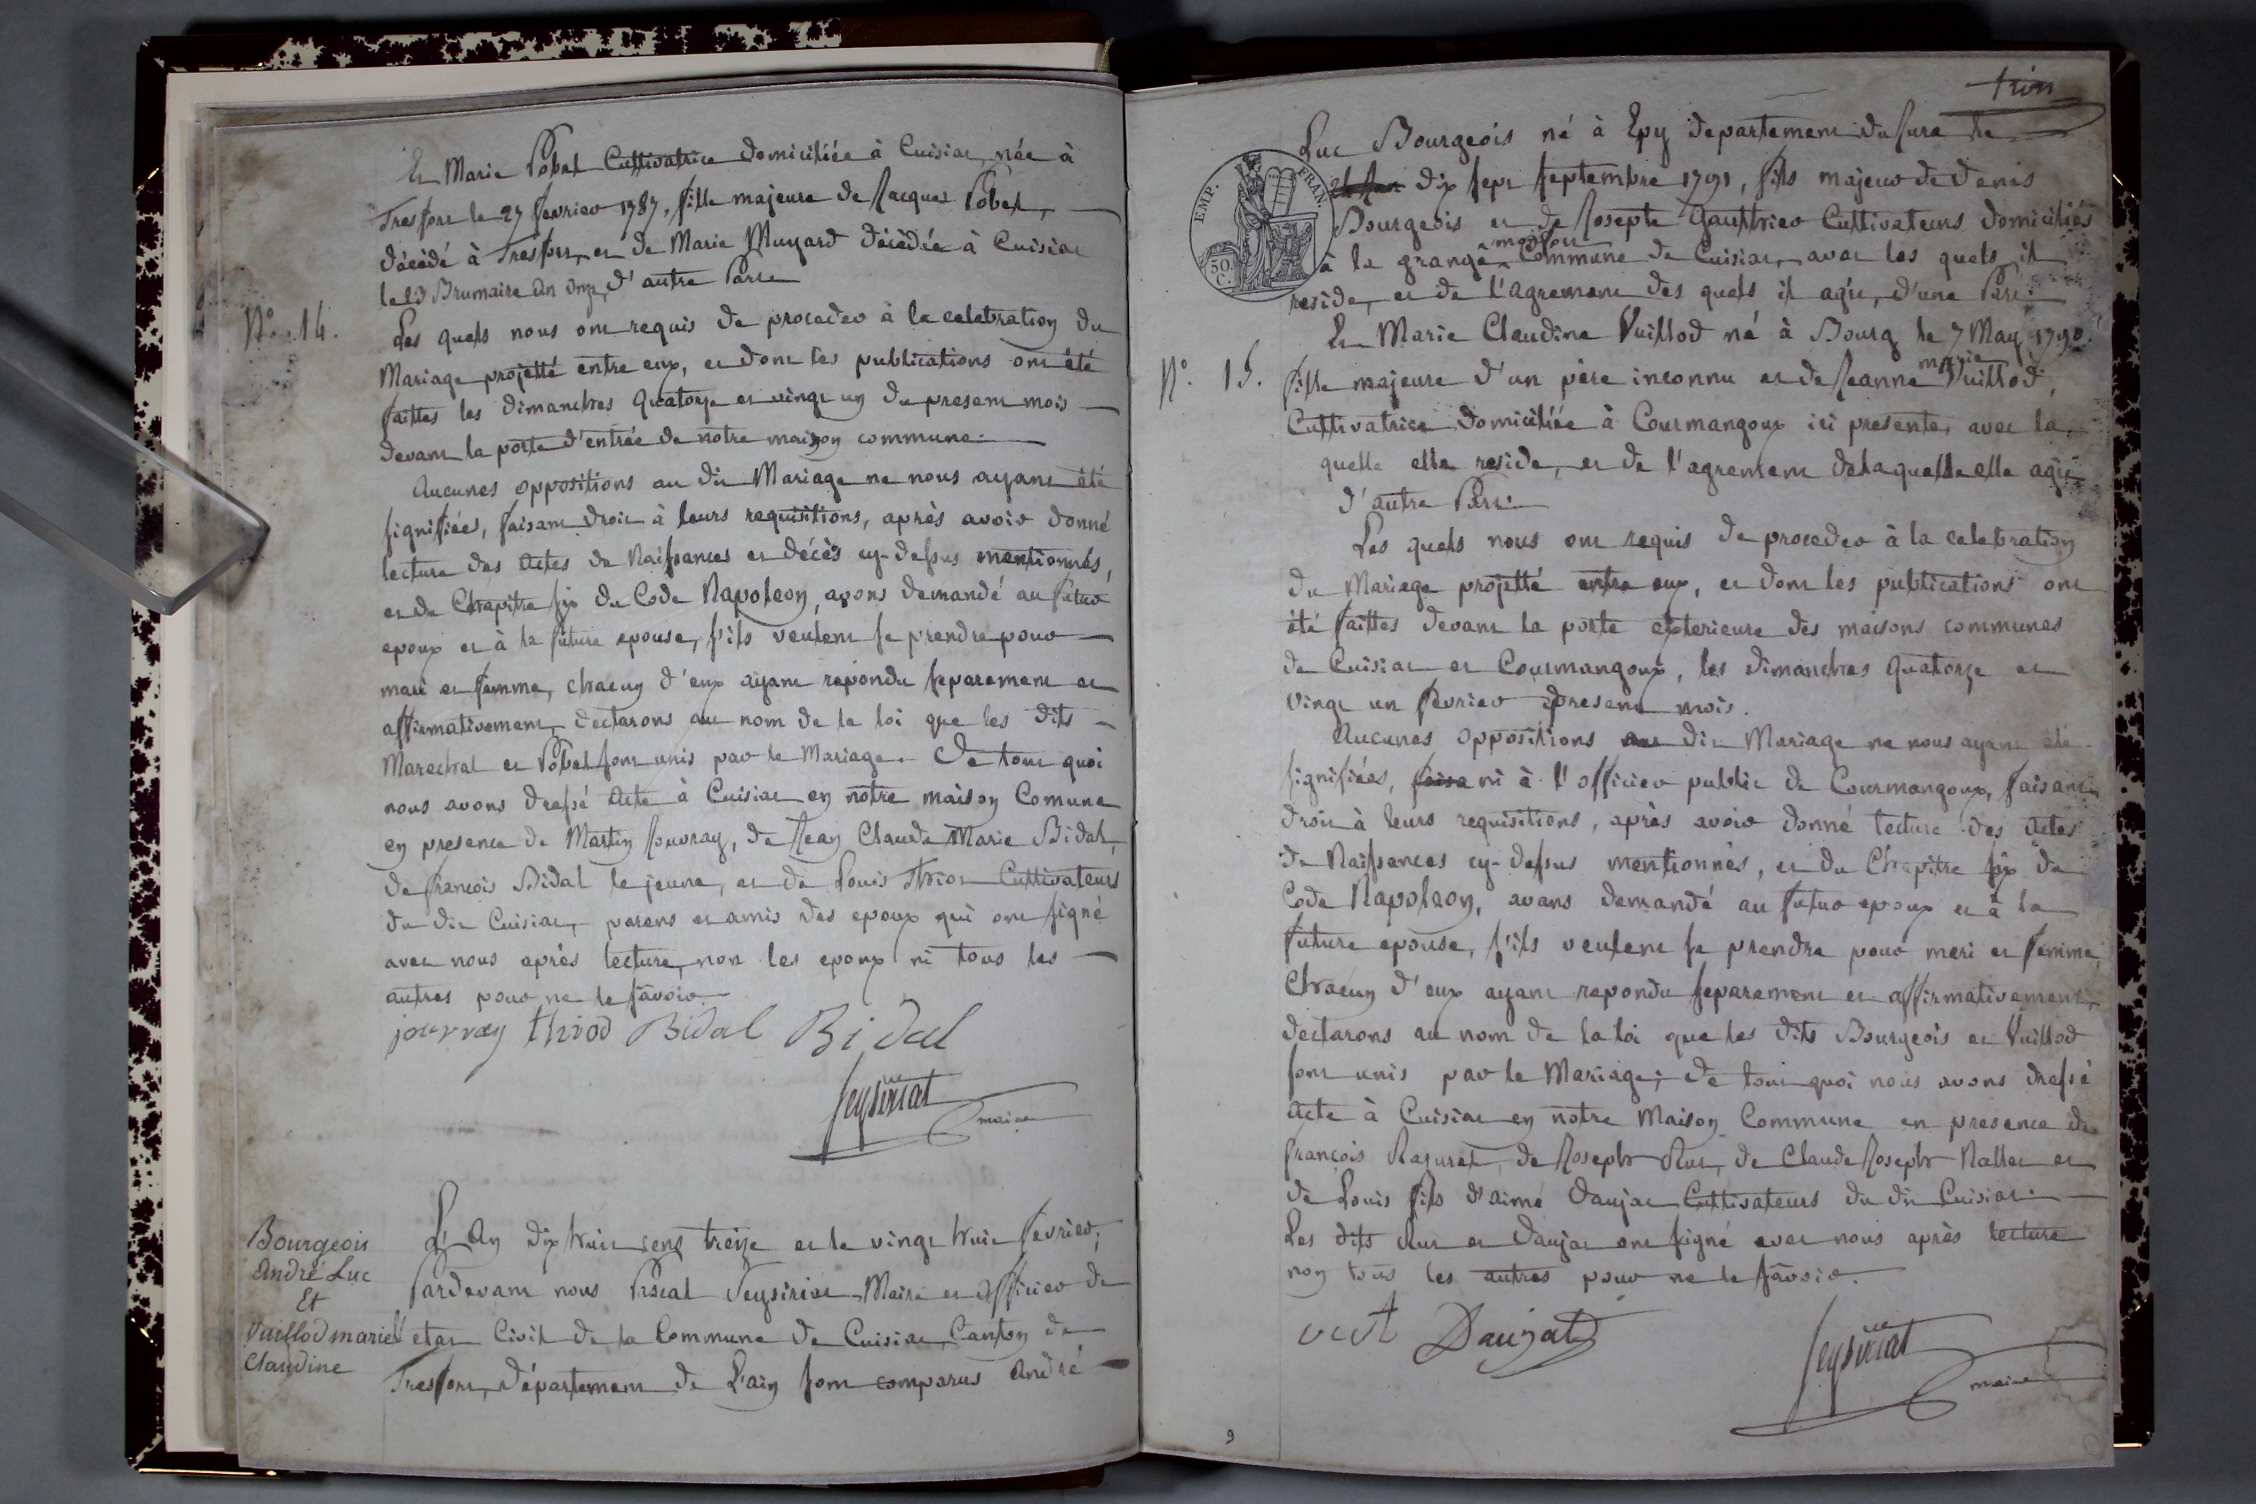 Et Marie Pobel Cultivatrice domiciliée à Cuisiat, née à
Tresfort le 27 fevrier 1787, fille majeure de Jacques Pobel,
décédé à Tresfort, et de Marie Muyard décédée à Cuisiat
le 23 Brumaire an onze, d'autre Part
N°. 14.
Les quels nous ont requis de proceder à la celebration du
Mariage projetté entre eux, et dont les publications ont été
faittes les dimanches quatorze et vingt un du present mois
devant la porte d'entrée de notre maison commune.
Aucunes oppositions au dit Mariage ne nous ayant été
signifiées, faisant droit à leurs requisitions, après avoir donné
lecture des actes de Naissances et décès cy-dessus mentionnés,
et du Chapitre six du Code Napoleon, avons demandé au futur
epoux et à la future epouse, s'ils veulent se prendre pour
mari et femme, chacun d'eux ayant repondu separement et
affirmativement, declarons au nom de la loi que les dits
Marechal et Pobel sont unis par le Mariage. De tout quoi
nous avons dressé acte à Cuisiat en notre maison Comune
en presence de Martin Jouvray, de Jean Claude Marie Bidal,
de françois Bidal le jeune, et de Louis Thiod Cultivateurs
du dit Cuisiat, parens et amis des epoux qui ont signé
avec nous après lecture, non les epoux ni tous les
autres pour ne le savoir.
jouvray thiod Bidal Bidal
Peysiriat
maire
Bourgeois
André Luc
Et
Vuillod marie
Claudine
L'An dix huit cent treize et le vingt huit fevrier,
Pardevant nous Pascal Peysiriat Maire et officier de
l'etat Civil de la Commune de Cuisiat, Canton de
Tresfort, département de L'ain sont comparus André
Luc Bourgeois né à Epy departement du Jura le
EMP. FRAN.
50 C.
dix sept septembre 1791, fils majeur de Denis
Bourgeois et de Josepte Gauthier Cultivateurs domiciliés
à la grange Commune de Cuisiat, avec les quels il
reside, et de l'agrement des quels il agit, d'une Part.
Et Marie Claudine Vuillod né à Bourg le 7 May 1790
N°. 15.
marie
fille majeure d'un père inconnu et de Jeanne Vuillod,
Cultivatrice domiciliée à Courmangoux ici presente, avec la
quelle elle reside, et de l'agrement de laquelle elle agit
d'autre Part.
Les quels nous ont requis de proceder à la celebration
du Mariage projetté entre eux, et dont les publications ont
été faittes devant la porte exterieure des maisons communes
de Cuisiat et Courmangoux, les dimanches quatorze et
vingt un fevrier present mois.
Aucunes oppositions au dit Mariage ne nous ayant été
signifiées, ni à l'officier public de Courmangoux, faisant
droit à leurs requisitions, après avoir donné lecture des actes
de Naissances cy-dessus mentionnés, et du Chapitre six du
Code Napoleon, avons demandé au futur epoux et à la
future epouse, s'ils veulent se prendre pour mari et femme,
Chacun d'eux ayant repondu separement et affirmativement,
declarons au nom de la loi que les dits Bourgeois et Vuillod
sont unis par le Mariage; de tout quoi nous avons dressé
acte à Cuisiat en notre Maison Commune en presence de
françois Razuret, de Joseph Rut, de Claude Joseph Nallet et
de Louis fils d'aimé Daujat Cultivateurs du dit Cuisiat.
Les dits Rut et Daujat ont signé avec nous après lecture
non tous les autres pour ne le savoir.
Daujat
Peysiriat
maire
9